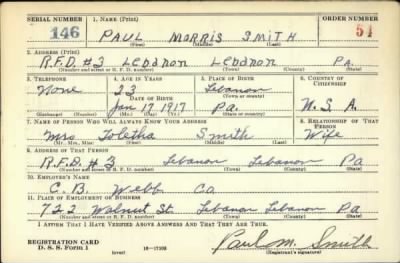 SERIAL NUMBER 1. NAME (Print) ORDER NUMBER
146 PAUL MORRIS SMITH 51
(First) (Middle) (Last)
2. ADDRESS (Print)
R.F.D. #3 Lebanon Lebanon Pa.
(Number and street or R. F. D. number) (Town) (County) (State)
3. TELEPHONE 4. AGE IN YEARS 5. PLACE OF BIRTH 6. COUNTRY OF CITIZENSHIP
None 23 Lebanon
DATE OF BIRTH (Town or county)
Jan 17 1917 Pa. U.S.A.
(Exchange) (Number) (Mo.) (Day) (Yr.) (State or country)
7. NAME OF PERSON WHO WILL ALWAYS KNOW YOUR ADDRESS 8. RELATIONSHIP OF THAT PERSON
Mrs Toletha Smith Wife
(Mr., Mrs., Miss) (First) (Middle) (Last)
9. ADDRESS OF THAT PERSON
R.F.D. #3 Lebanon Lebanon Pa
(Number and street or R. F. D. number) (Town) (County) (State)
10. EMPLOYER'S NAME
C. B. Webb Co
11. PLACE OF EMPLOYMENT OR BUSINESS
722 Walnut St. Lebanon Lebanon Pa
(Number and street or R. F. D. number) (Town) (County) (State)
I AFFIRM THAT I HAVE VERIFIED ABOVE ANSWERS AND THAT THEY ARE TRUE.
REGISTRATION CARD
D. S. S. Form 1 (over) 16—17105 Paul M. Smith
(Registrant's signature)